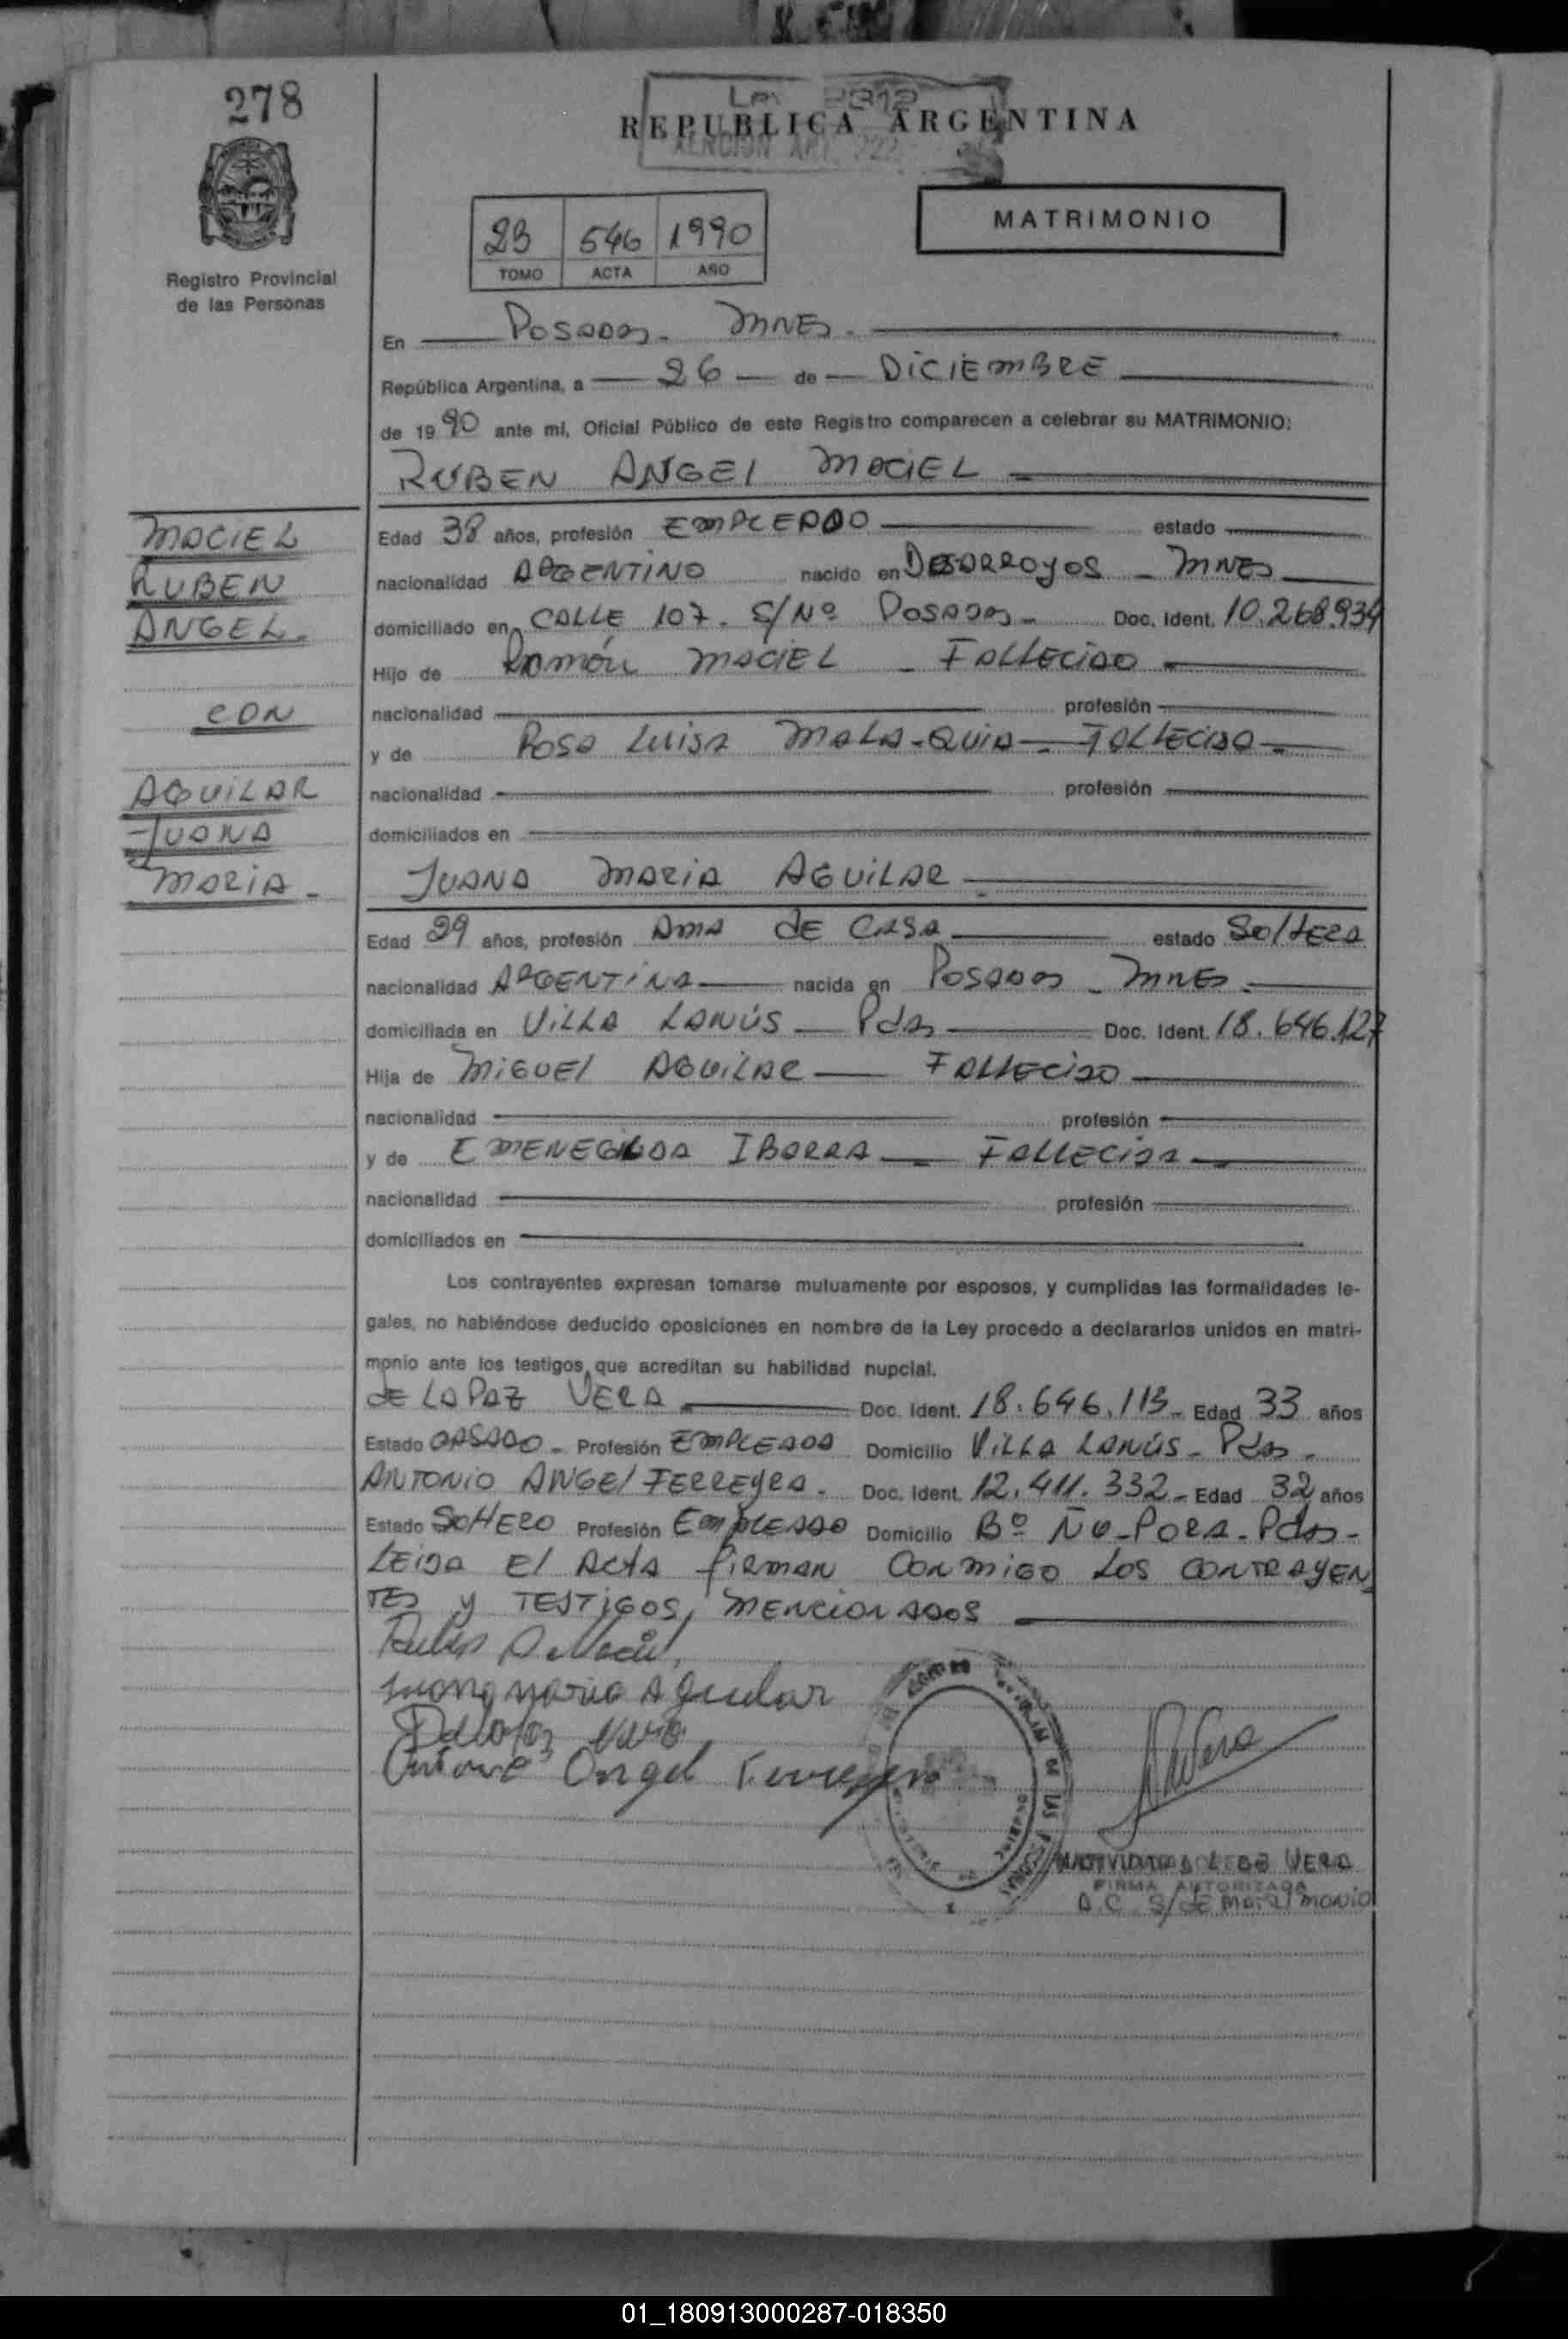 278
LEY 2312
REPUBLICA ARGENTINA
MATRIMONIO
23 546 1990
TOMO ACTA AÑO
Registro Provincial
de las Personas
En Posadas - Mnes.
República Argentina, a 26 de Diciembre
de 1990 ante mí, Oficial Público de este Registro comparecen a celebrar su MATRIMONIO:
RUBEN ANGEL MACIEL
MACIEL
RUBEN
ANGEL.
CON
AGUILAR
JUANA
MARIA -
Edad 38 años, profesión EMPLEADO estado
nacionalidad ARGENTINO nacido en Dos ARROYOS - MNES
domiciliado en CALLE 107. S/Nº Posadas - Doc. Ident. 10.268.934
Hijo de Ramón MACIEL - FALLECIDO
nacionalidad profesión
y de ROSA LUISA MALA-QUIA - FALLECIDA -
nacionalidad profesión
domiciliados en
JUANA MARIA AGUILAR
Edad 29 años, profesión AMA DE CASA estado SOLTERA
nacionalidad ARGENTINA nacida en POSADAS - MNES.
domiciliada en VILLA LANÚS - Pdas Doc. Ident. 18.646.127
Hija de MIGUEL AGUILAR - FALLECIDO
nacionalidad profesión
y de EMENEGILDA IBARRA - FALLECIDA
nacionalidad profesión
domiciliados en
Los contrayentes expresan tomarse mutuamente por esposos, y cumplidas las formalidades le-
gales, no habiéndose deducido oposiciones en nombre de la Ley procedo a declararlos unidos en matri-
monio ante los testigos que acreditan su habilidad nupcial.
DE LA PAZ VERA Doc. Ident. 18.646.113 - Edad 33 años
Estado CASADO - Profesión EMPLEADA Domicilio VILLA LANÚS - Pdas -
ANTONIO ANGEL FERREYRA. Doc. Ident. 12.411.332 - Edad 32 años
Estado SOLTERO Profesión EMPLEADO Domicilio Bº ÑU-PORA - Pdas -
LEIDA El ACTA firman CONMIGO LOS CONTRAYEN
TES y TESTIGOS, MENCIONADOS
Ruben A Maciel
Juana Maria Aguilar
De la Paz Vera
Antonio Angel Ferreyra
VERA
FIRMA AUTORIZADA
A.C. S/DE MATRIMONIO
01_180913000287-018350